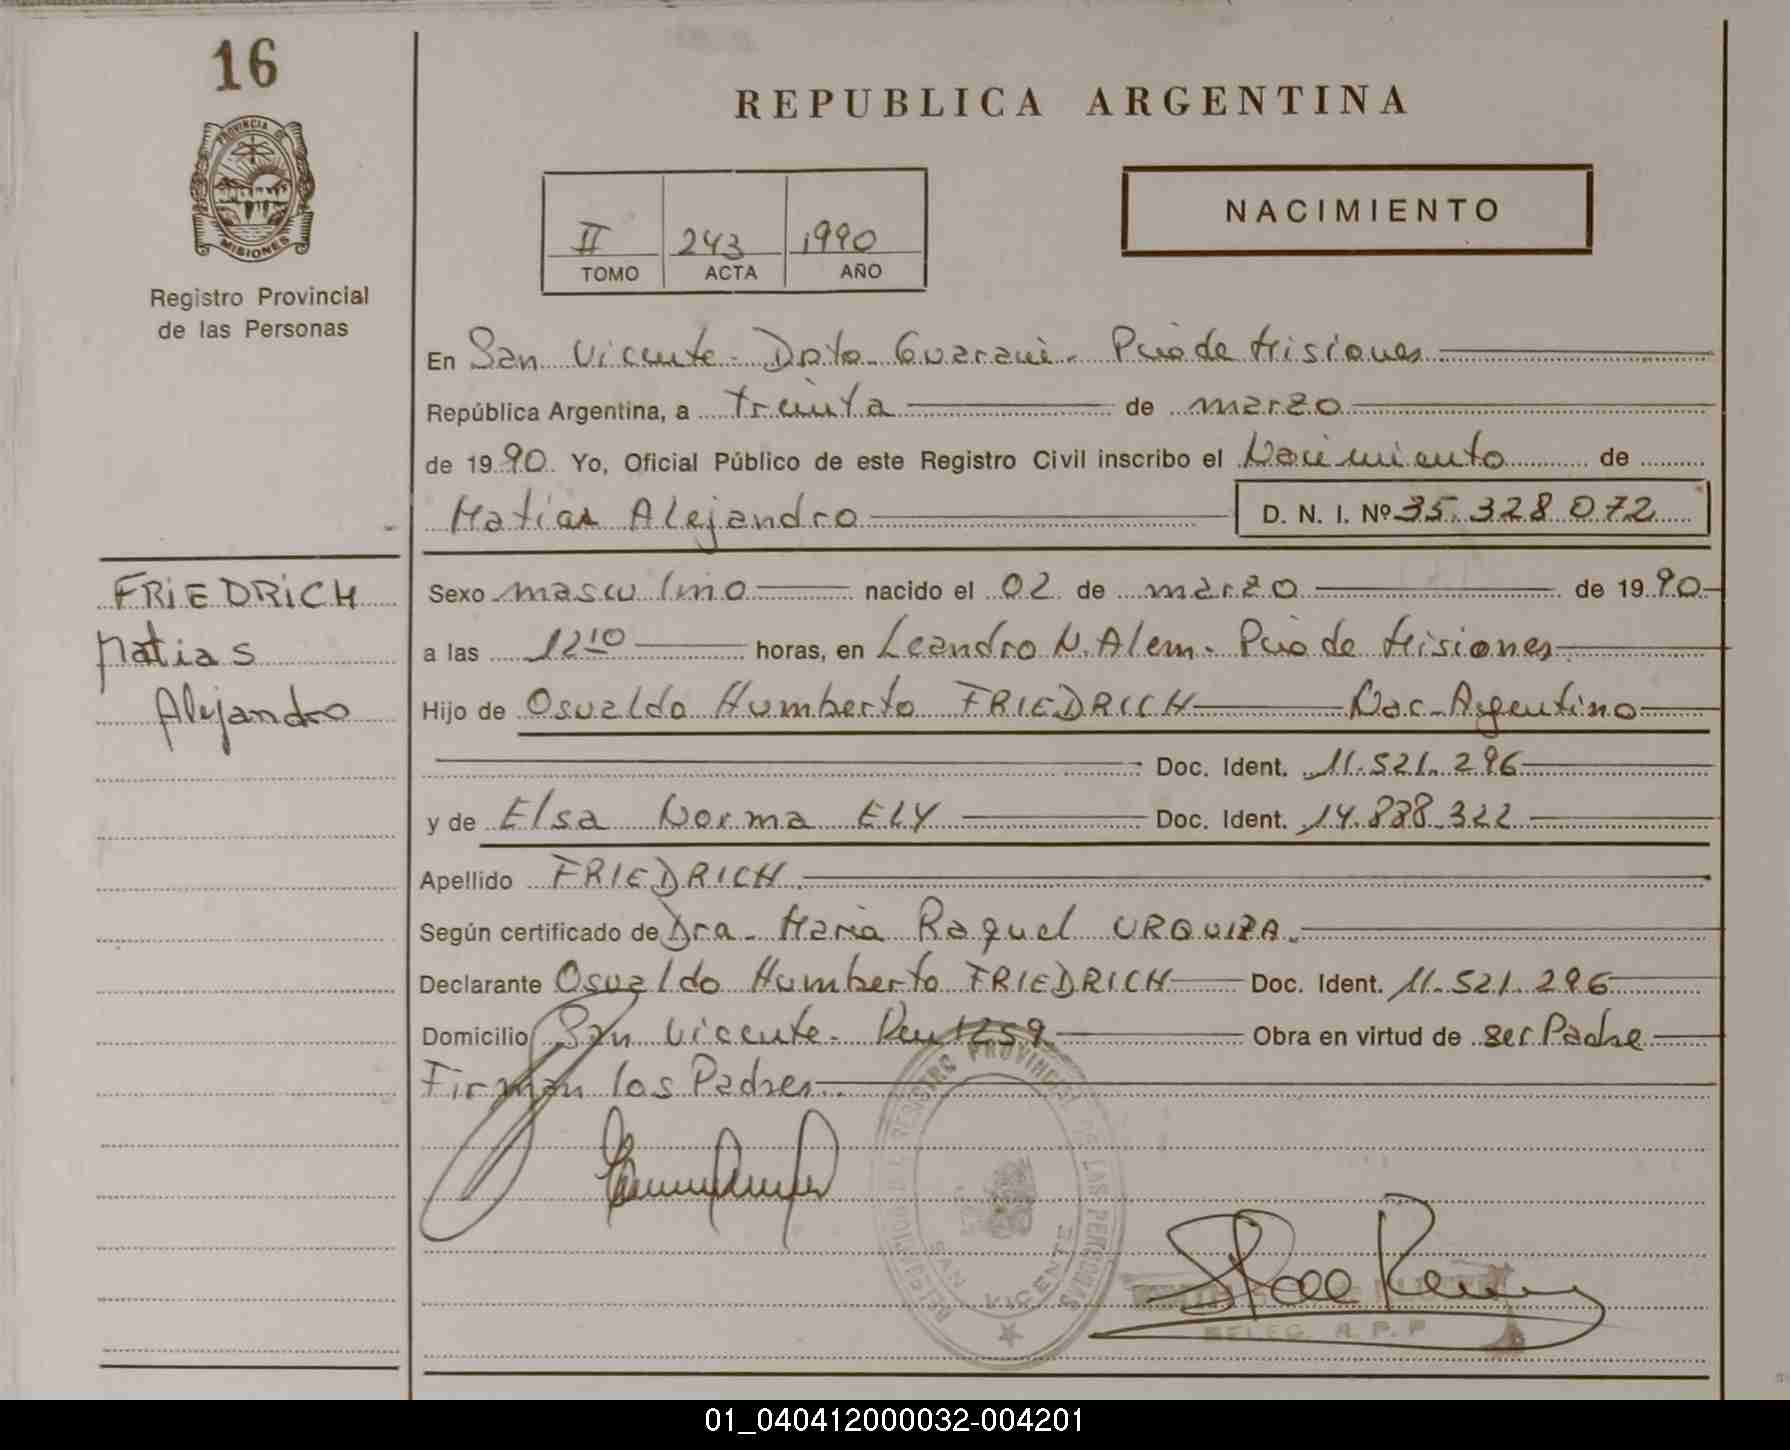 16
PROVINCIA DE
MISIONES
Registro Provincial
de las Personas
REPUBLICA ARGENTINA
II 243 1990
TOMO ACTA AÑO
NACIMIENTO
En San Vicente - Dpto Guarani - Pcia de Misiones
República Argentina, a treinta de marzo
de 1990. Yo, Oficial Público de este Registro Civil inscribo el Nacimiento de
Matias Alejandro D. N. I. Nº 35.328.072
FRIEDRICH
Matias
Alejandro
Sexo masculino nacido el 02 de marzo de 1990
a las 12¹⁰ horas, en Leandro N. Alem - Pcia de Misiones
Hijo de Osvaldo Humberto FRIEDRICH Nac. Argentino
Doc. Ident. 11.521.296
y de Elsa Norma ELY Doc. Ident. 14.888.322
Apellido FRIEDRICH
Según certificado de Dra. Maria Raquel URQUIZA.
Declarante Osvaldo Humberto FRIEDRICH Doc. Ident. 11.521.296
Domicilio San Vicente - 1259 Obra en virtud de ser Padre
Firman los Padres.
REGISTRO PROVINCIAL DE LAS PERSONAS
SAN VICENTE
DELEG. R. P. P.
01_040412000032-004201